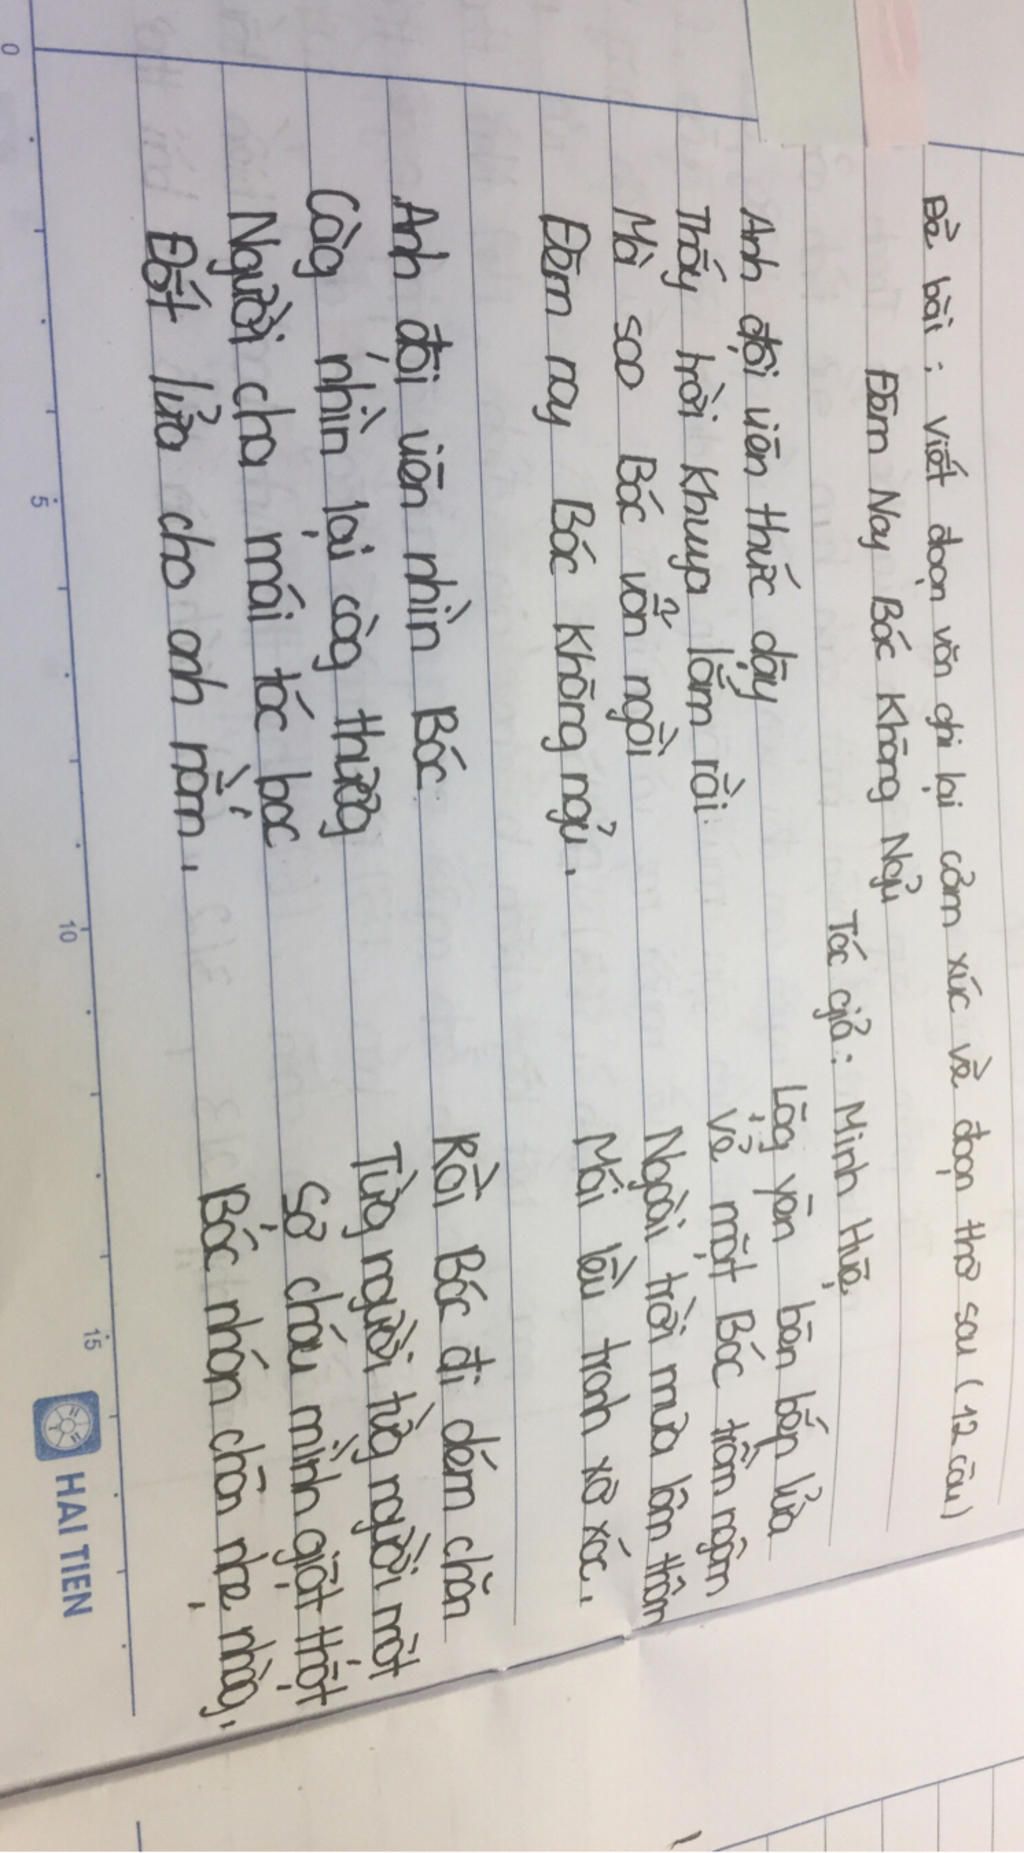 Đề bài: Viết đoạn văn ghi lại cảm xúc về đoạn thơ sau (12 câu)
Đêm Nay Bác Không Ngủ
Tác giả: Minh Huệ
Anh đội viên thức dậy
Thấy trời khuya lắm rồi
Mà sao Bác vẫn ngồi
Đêm nay Bác không ngủ.
Lặg yên bên bếp lửa
Vẻ mặt Bác trầm ngâm
Ngoài trời mưa lâm thâm
Mái lều tranh xơ xác.
Anh đội viên nhìn Bác
Càg nhìn lại càg thươg
Người cha mái tóc bạc
Đốt lửa cho anh nằm.
Rồi Bác đi dém chăn
Từg người từg người một
Sợ cháu mình giật thột
Bác nhón chân nhẹ nhàg.
0
5
10
15
HAI TIEN